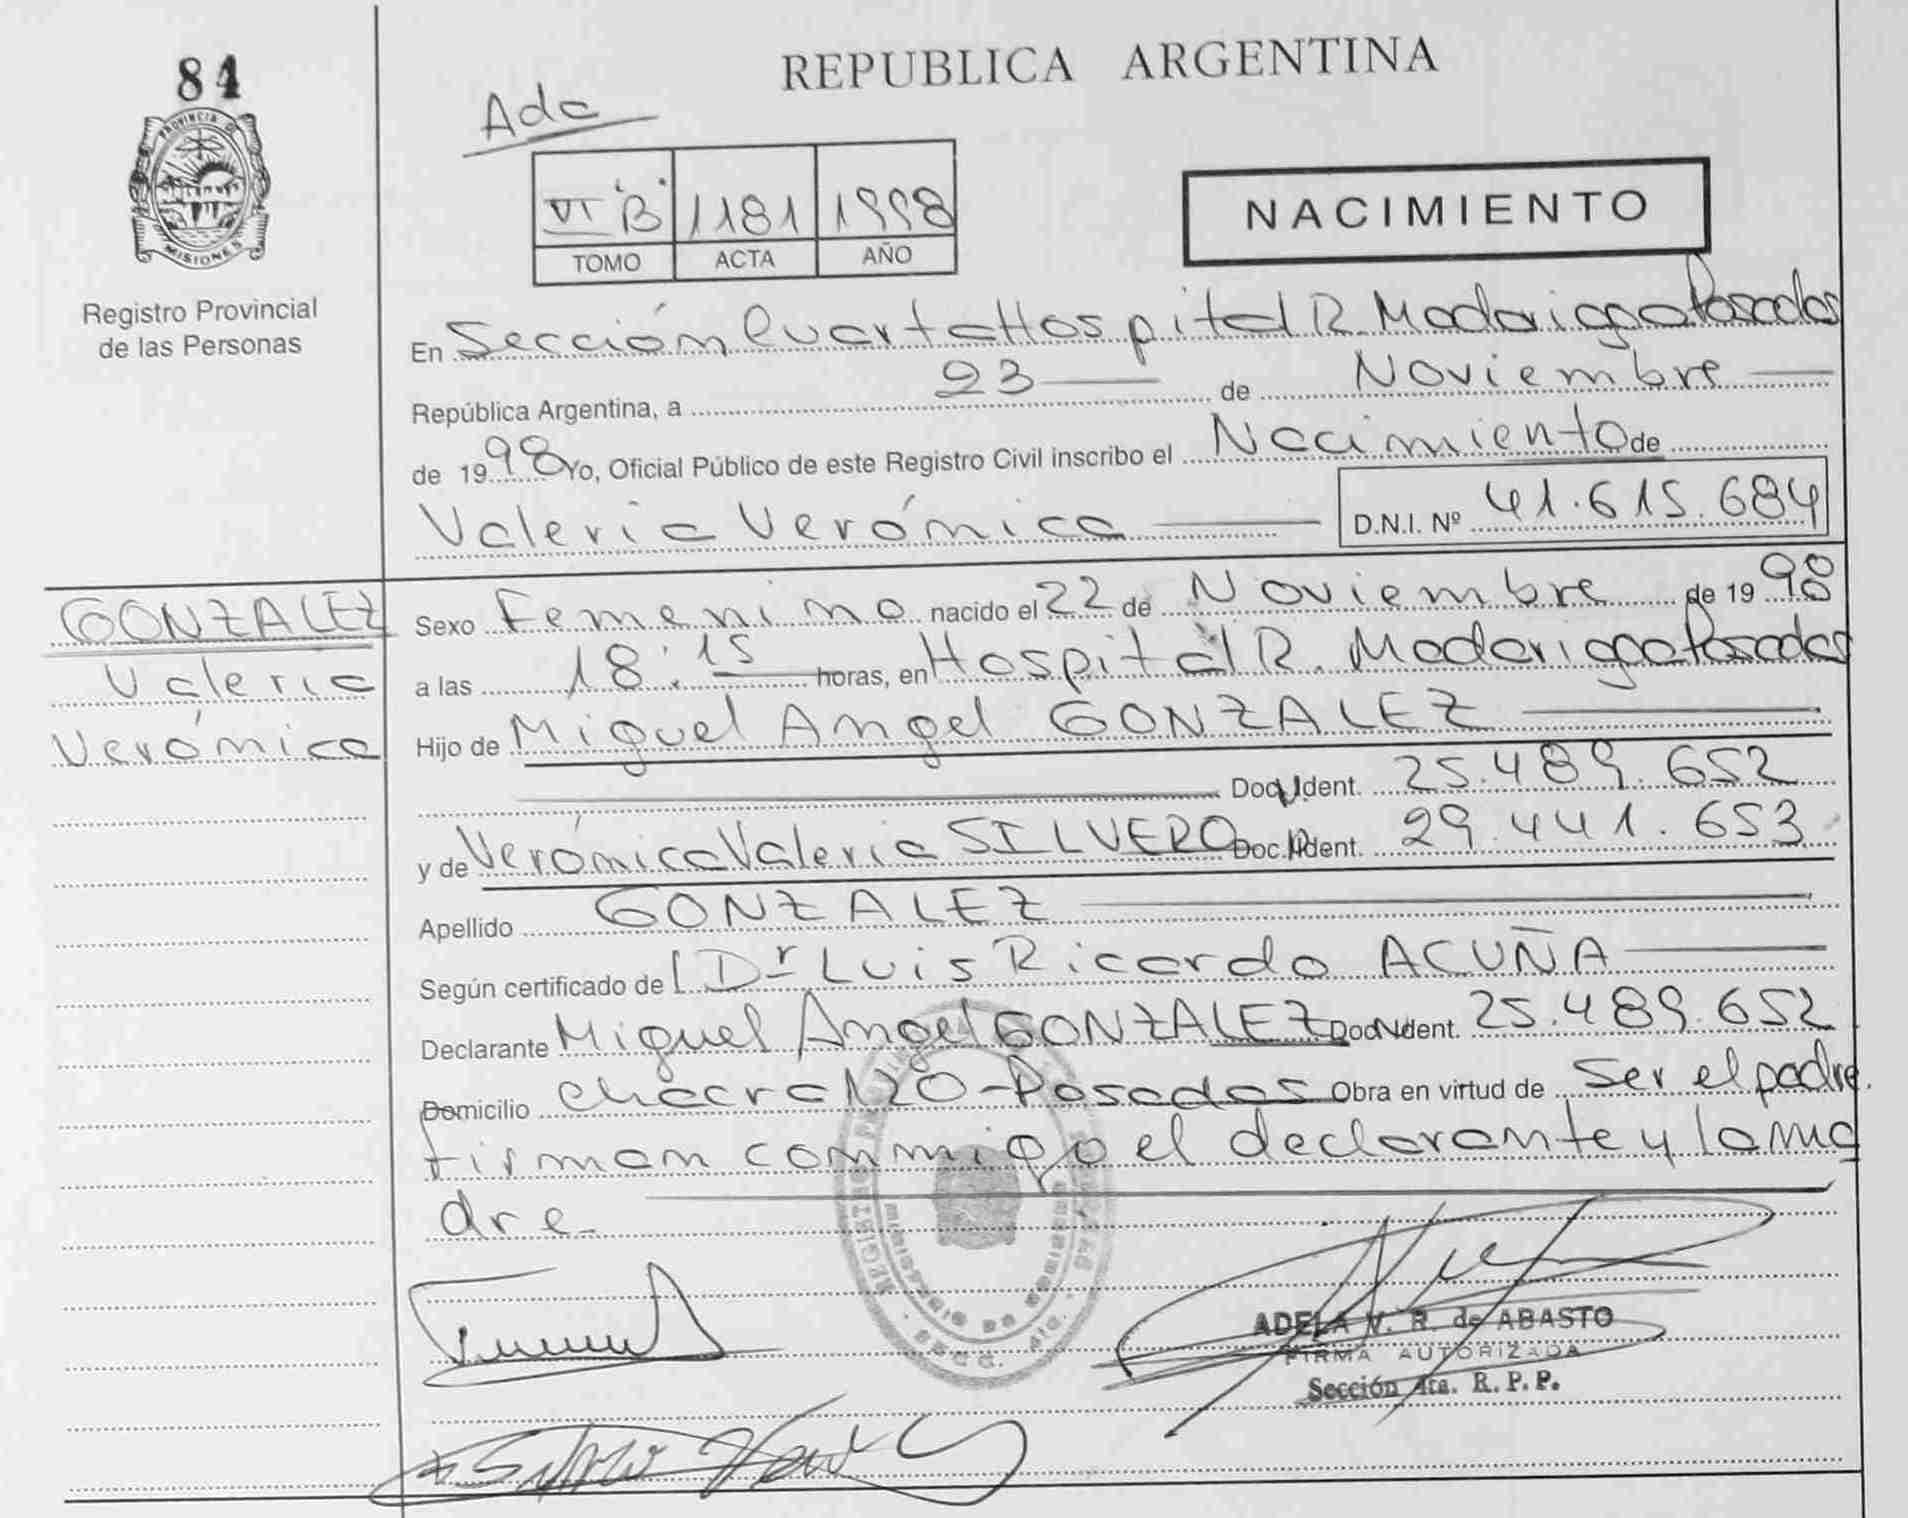 84
PROVINCIA D
MISIONES
Registro Provincial
de las Personas
REPUBLICA ARGENTINA
Ada
VI "B" 1181 1998
TOMO ACTA AÑO
NACIMIENTO
En Sección Cuarta Hospital R. Madariaga Posadas
República Argentina, a 23 de Noviembre
de 1998 Yo, Oficial Público de este Registro Civil inscribo el Nacimiento de
Valeria Verónica D.N.I. Nº 41.615.684
GONZALEZ
Valeria
Verónica
Sexo Femenino nacido el 22 de Noviembre de 1998
a las 18:15 horas, en Hospital R. Madariaga Posadas
Hijo de Miguel Angel GONZALEZ
Doc. Ident. 25.489.652
y de Verónica Valeria SILVERO Doc. Ident. 29.441.653
Apellido GONZALEZ
Según certificado de Dr Luis Ricardo ACUÑA
Declarante Miguel Angel GONZALEZ Doc. Ident. 25.489.652
Domicilio Chacra 120-Posadas Obra en virtud de ser el padre.
firman conmigo el declarante y la ma
dre-
ADELA V. R. de ABASTO
FIRMA AUTORIZADA
Sección 4ta. R. P. P.